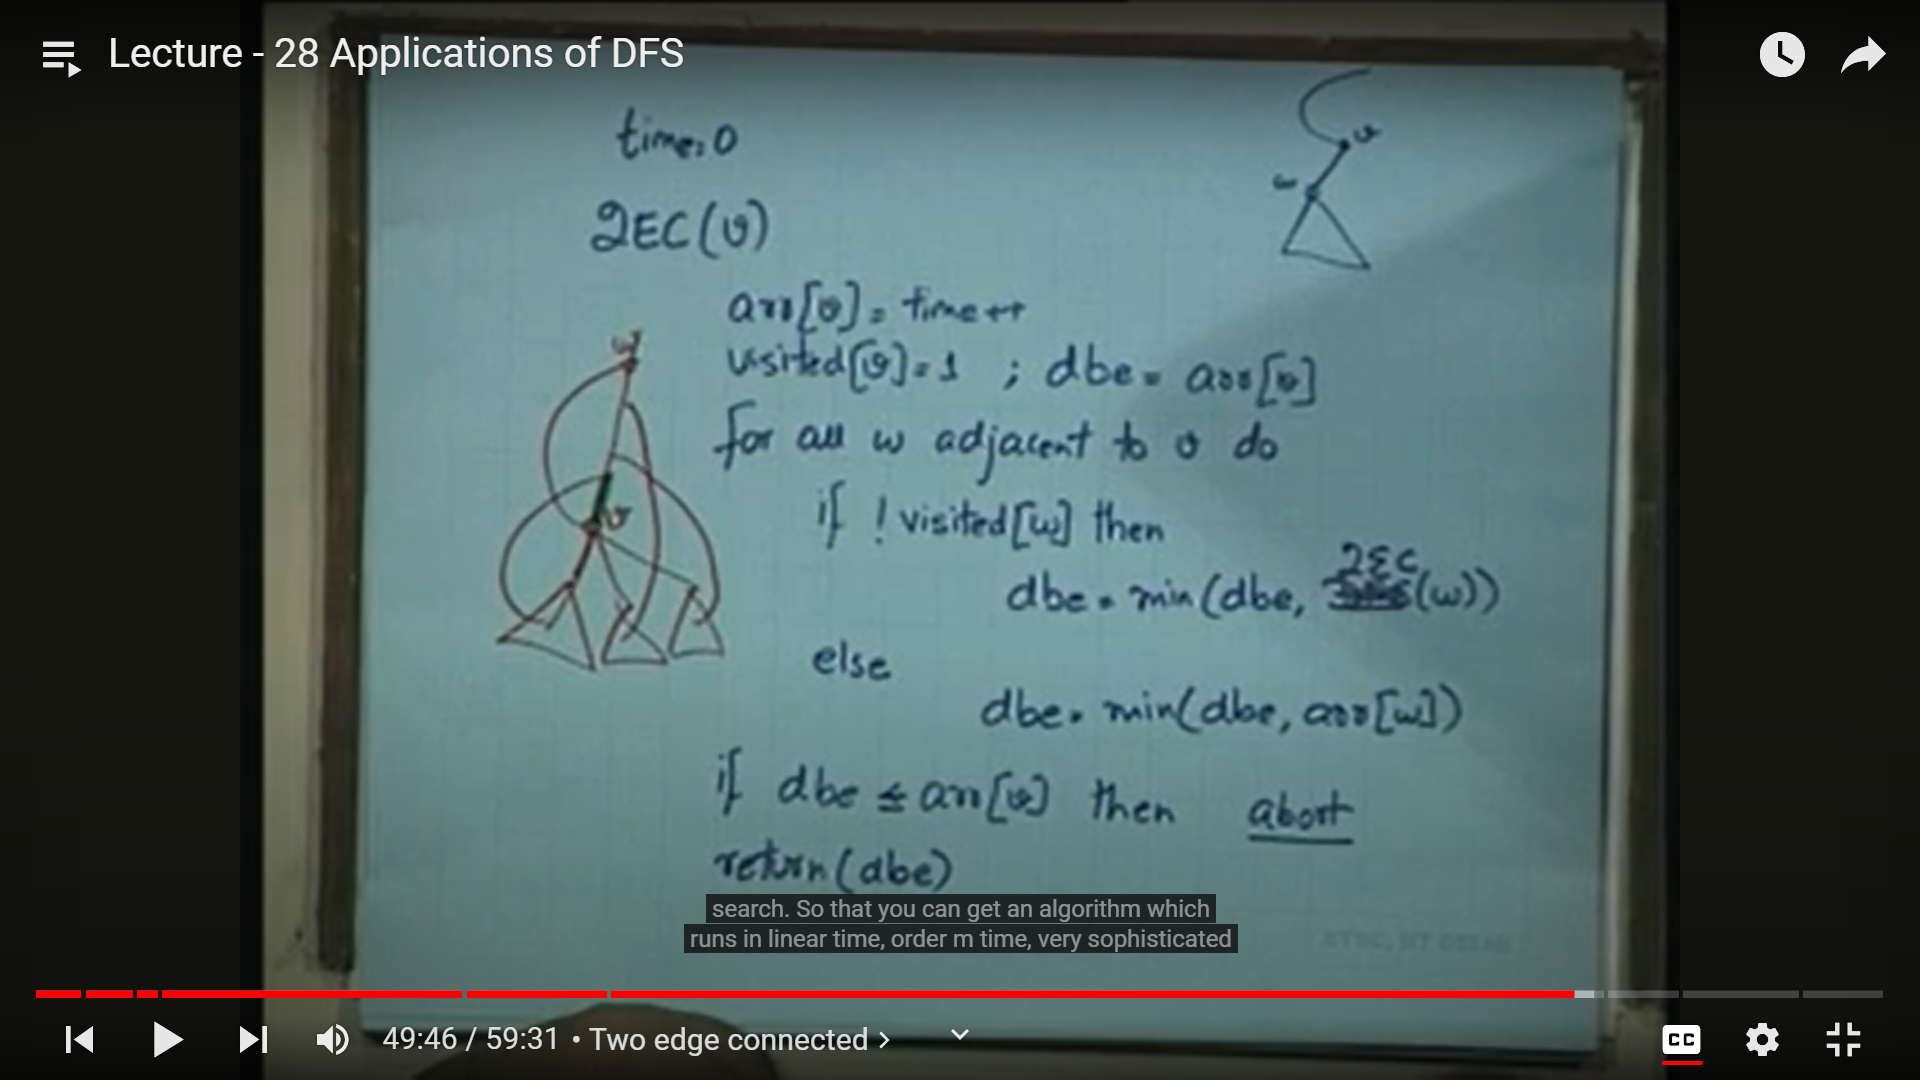 Lecture - 28 Applications of DFS
time=0
v
w
2EC(v)
arr[v] = time++
w
visited[v]=1 ; dbe = arr[v]
for all w adjacent to v do
v
if !visited[w] then
2EC
dbe = min(dbe, (w))
else
dbe = min(dbe, arr[w])
if dbe ≤ arr[v] then abort
return(dbe)
search. So that you can get an algorithm which
runs in linear time, order m time, very sophisticated
49:46 / 59:31 • Two edge connected >
CC